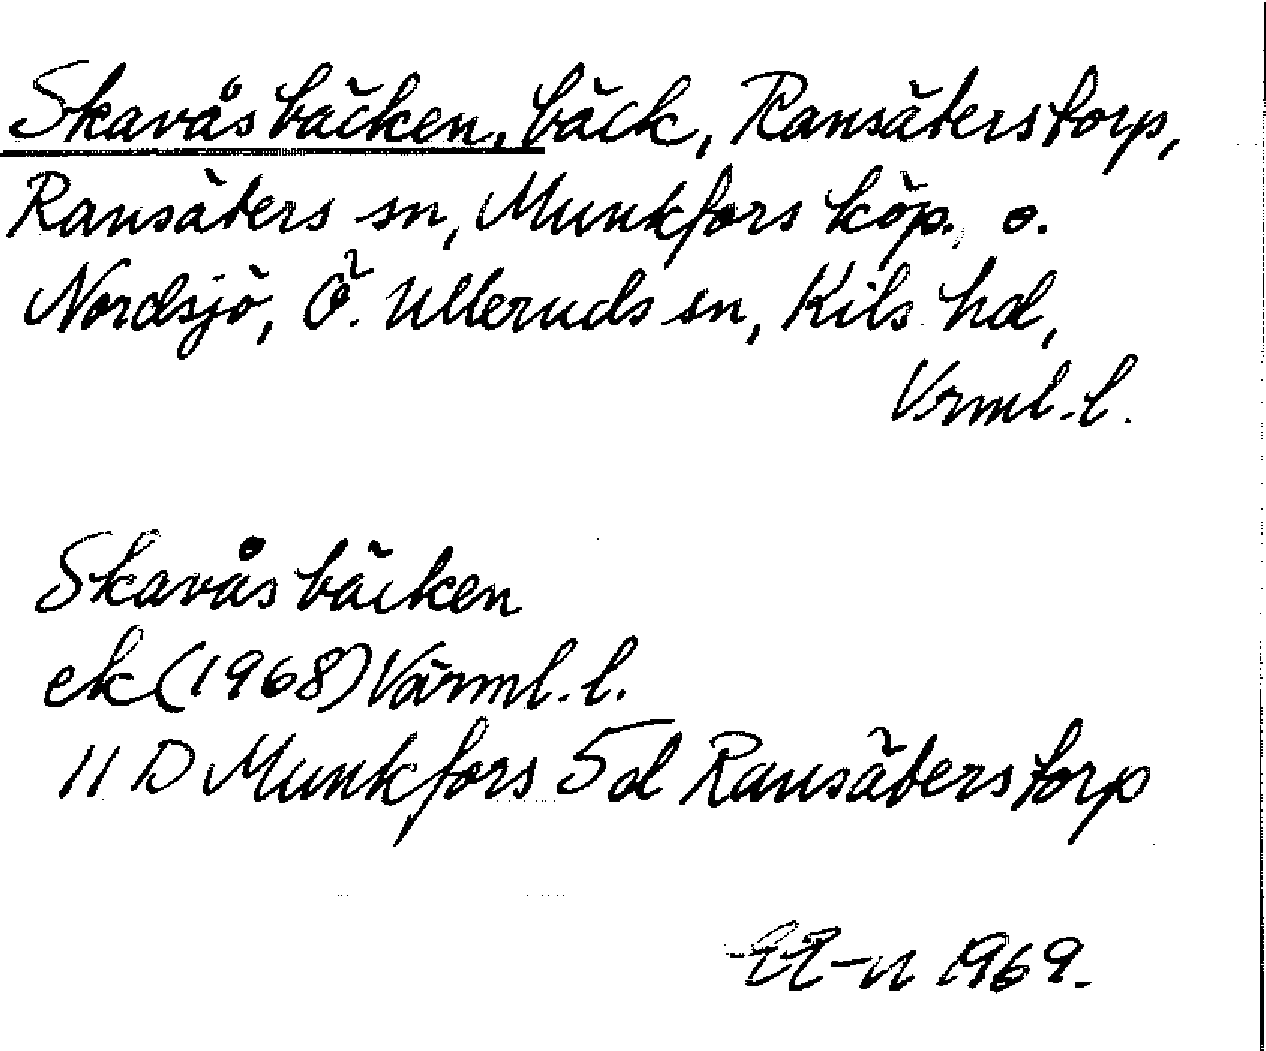 Skavåsbäcken, bäck, Ransäterstorp,
Ransäters sn, Munkfors köp. o.
Nordsjö, Ö. Ulleruds sn, Kils hd,
Vrml. l.
Skavåsbäcken
ek (1968) Värml. l.
11 D Munkfors 5d Ransäterstorp
EE-n 1969.